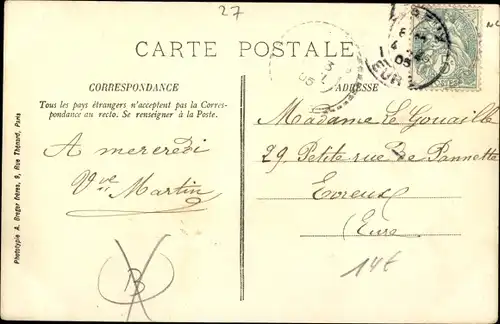 27
CARTE POSTALE
CORRESPONDANCE
Tous les pays étrangers n'acceptent pas la Corres-
pondance au recto. Se renseigner à la Poste.
A mercredi
Vve Martin
B
ADRESSE
Madame Le Gouaille
29 Petite rue de Pannette
Evreux
Eure
14t
EUR
05
Phototypie A. Breger frères, 9, Rue Thénard, Paris